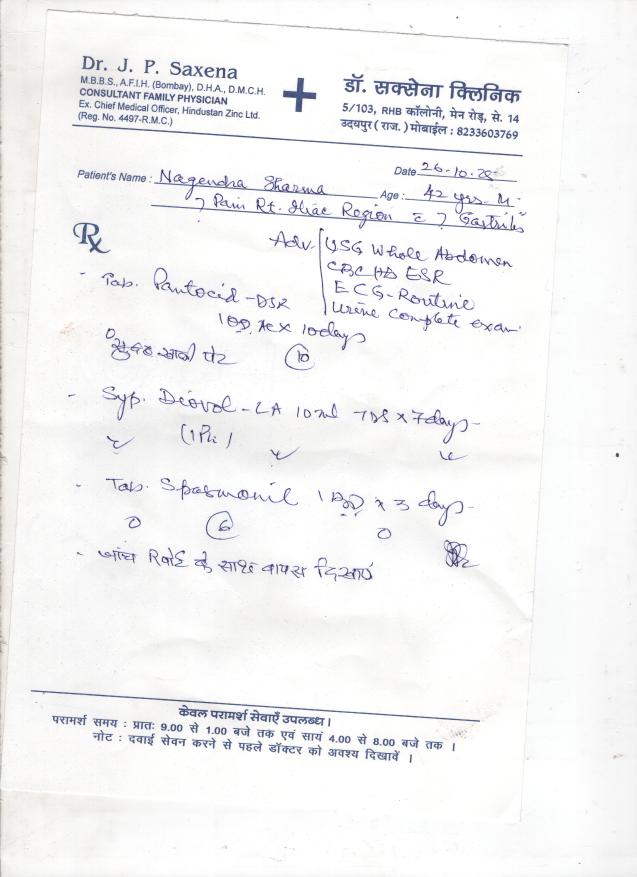 Dr. J. P. Saxena
M.B.B.S., A.F.I.H. (Bombay), D.H.A., D.M.C.H.
CONSULTANT FAMILY PHYSICIAN
Ex. Chief Medical Officer, Hindustan Zinc Ltd.
(Reg. No. 4497-R.M.C.)
डॉ. सक्सेना क्लिनिक
5/103, RHB कॉलोनी, मेन रोड़, से. 14
उदयपुर ( राज. ) मोबाईल : 8233603769
Date 26-10-25
Patient's Name : Nagendra Sharma Age : 42 yrs. M
? Pain Rt. Iliac Region c ? Gastritis
Rx
Adv. USG Whole Abdomen
CBC Hb ESR
ECG-Routine
Urine complete exam
- Tab. Pantocid-DSR
1 OD AC x 10 days
सुबह खाली पेट (10)
- Syp. Diovol-LA 10ml TDS x 7 days-
- Tab. Spasmonil 1 BD x 3 days-
0 (6) 0
- जांच रिपोर्ट के साथ वापस दिखाएं
केवल परामर्श सेवाएँ उपलब्ध।
परामर्श समय : प्रातः 9.00 से 1.00 बजे तक एवं सायं 4.00 से 8.00 बजे तक ।
नोट : दवाई सेवन करने से पहले डॉक्टर को अवश्य दिखावें ।